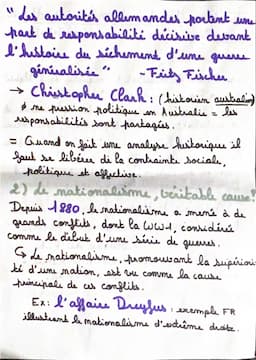 "Les autorités allemandes portent une
part de responsabilité décisive devant
l'histoire du déchement d'une guerre
généralisée" - Fritz Fischer
→ Christopher Clark : (historien australien)
≠ ne pression politique en Australie = les
responsabilités sont partagées.
= Quand on fait une analyse historique il
faut se libérer de la contrainte sociale,
politique et affective.
2) Le nationalisme, véritable cause?
Depuis 1880, le nationalisme a mené à de
grands conflits, dont la WW1, considérée
comme le début d'une série de guerres.
↳ Le nationalisme, promouvant la supériori-
té d'une nation, est vu comme la cause
principale de ces conflits.
Ex : l'affaire Dreyfus : exemple FR
illustrant le nationalisme d'extrême droite.